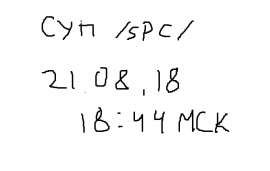 СУП /SPC/
21.08.18
18:44 МСК